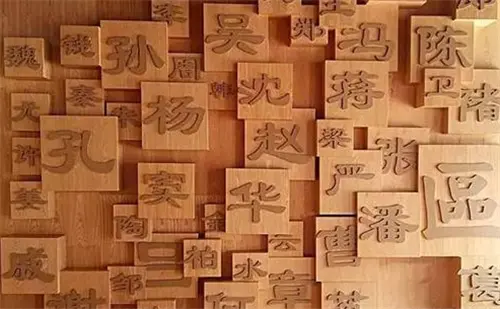 李 吴 王 郑
魏 熊 孙 周 冯 陈
尤 秦 韩 沈 蒋 卫 褚
许 孔 杨 赵 梁 张
窦 华 严 區
陶 金 潘
戚 邹 柏 云 曹
谢 何 水 章 葛